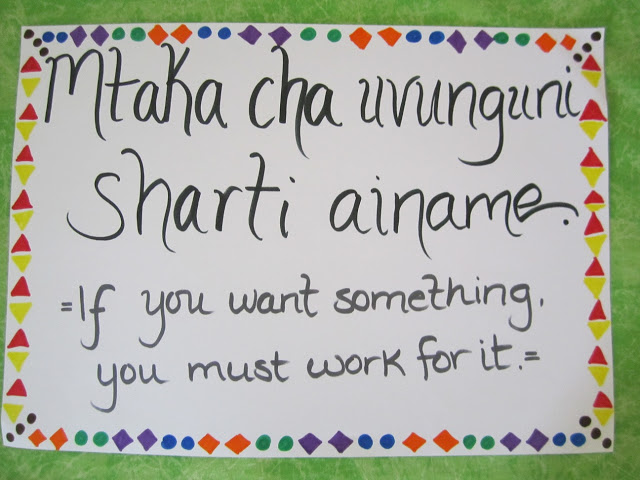 Mtaka cha uvunguni
sharti ainame.
=If you want something,
you must work for it.=